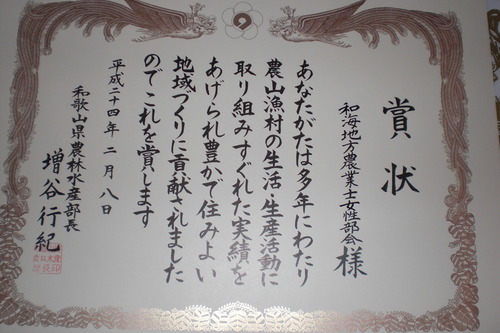 賞状
和海地方農業士女性部会様
あなたがたは多年にわたり
農山漁村の生活・生産活動に
取り組みすぐれた実績を
あげられ豊かで住みよい
地域づくりに貢献されました
のでこれを賞します
平成二十四年二月八日
和歌山県農林水産部長
増谷行紀